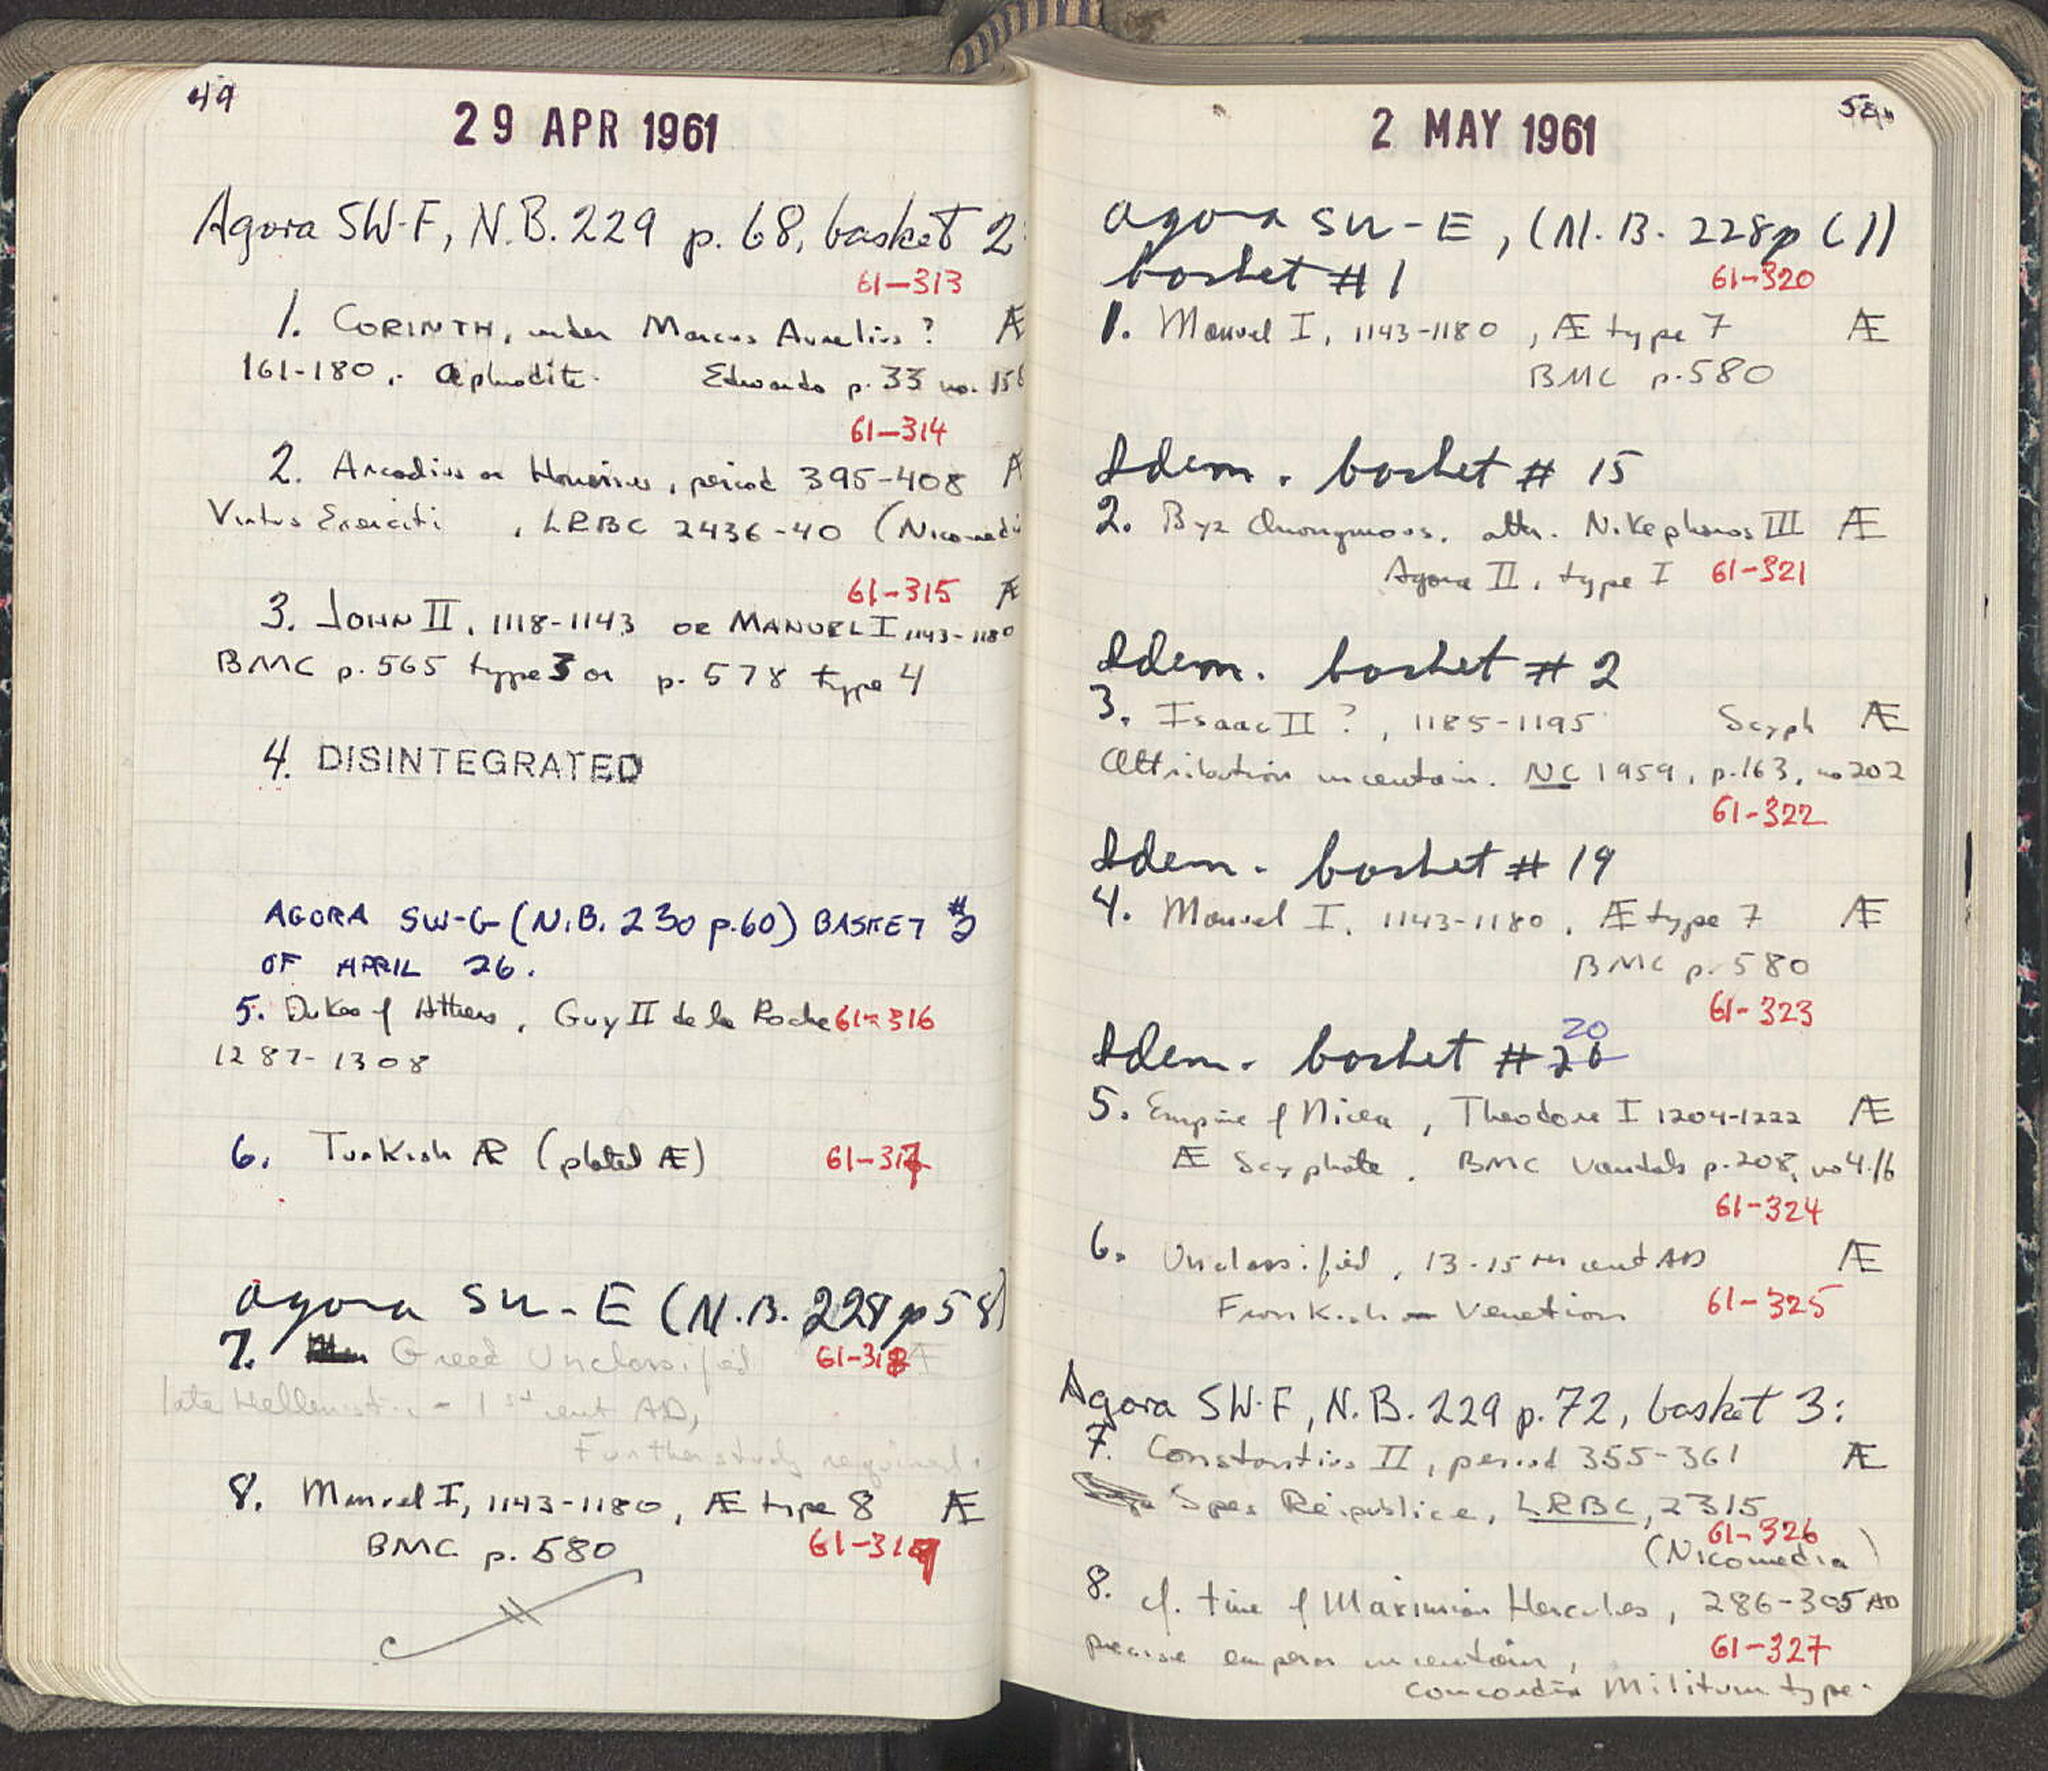 49
29 APR 1961
Agora SW-F, N.B. 229 p. 68, basket 2:
61-313
1. CORINTH, under Marcus Aurelius? Æ
161-180. Aphrodite. Edwards p. 33 no. 156
61-314
2. Arcadius or Honorius, period 395-408 Æ
Virtus Exerciti, LRBC 2436-40 (Nicomedia
61-315 Æ
3. JOHN II, 1118-1143 OR MANUEL I 1143-1180
BMC p. 565 type 3 or p. 578 type 4
4. DISINTEGRATED
AGORA SW-G (N.B. 230 p.60) BASKET #2
OF APRIL 26.
5. Dukes of Athens, Guy II de la Roche 61-316
1287-1308
6. Turkish AR (plated Æ) 61-317
agora SW-E (N.B. 228 p 58)
7. Greek Unclassified 61-318 Æ
late Hellenistic - 1st cent AD,
Further study required.
8. Manuel I, 1143-1180, Æ type 8 Æ
BMC p. 580 61-319
2 MAY 1961
50
agora SW-E, (N.B. 228 p 61)
basket #1 61-320
1. Manuel I, 1143-1180, Æ type 7 Æ
BMC p. 580
Idem. basket # 15
2. Byz Anonymous. attr. Nikephoros III Æ
Agora II, type I 61-321
Idem. basket # 2
3. Isaac II?, 1185-1195 Scyph Æ
Attribution uncertain. NC 1959, p. 163, no 202
61-322
Idem. basket # 19
4. Manuel I, 1143-1180. Æ type 7 Æ
BMC p. 580
61-323
20
Idem. basket #26
5. Empire of Nicea, Theodore I 1204-1222 Æ
Æ Scyphate. BMC Vandals p. 208, no 4-16
61-324
6. Unclassified, 13-15th cent AD Æ
Frankish - Venetian 61-325
Agora SW-F, N.B. 229 p. 72, basket 3:
7. Constantius II, period 355-361 Æ
Spes Reipublice, LRBC, 2315
61-326
(Nicomedia)
8. cf. time of Maximian Hercules, 286-305 AD
precise emperor uncertain, 61-327
Concordia Militum type.